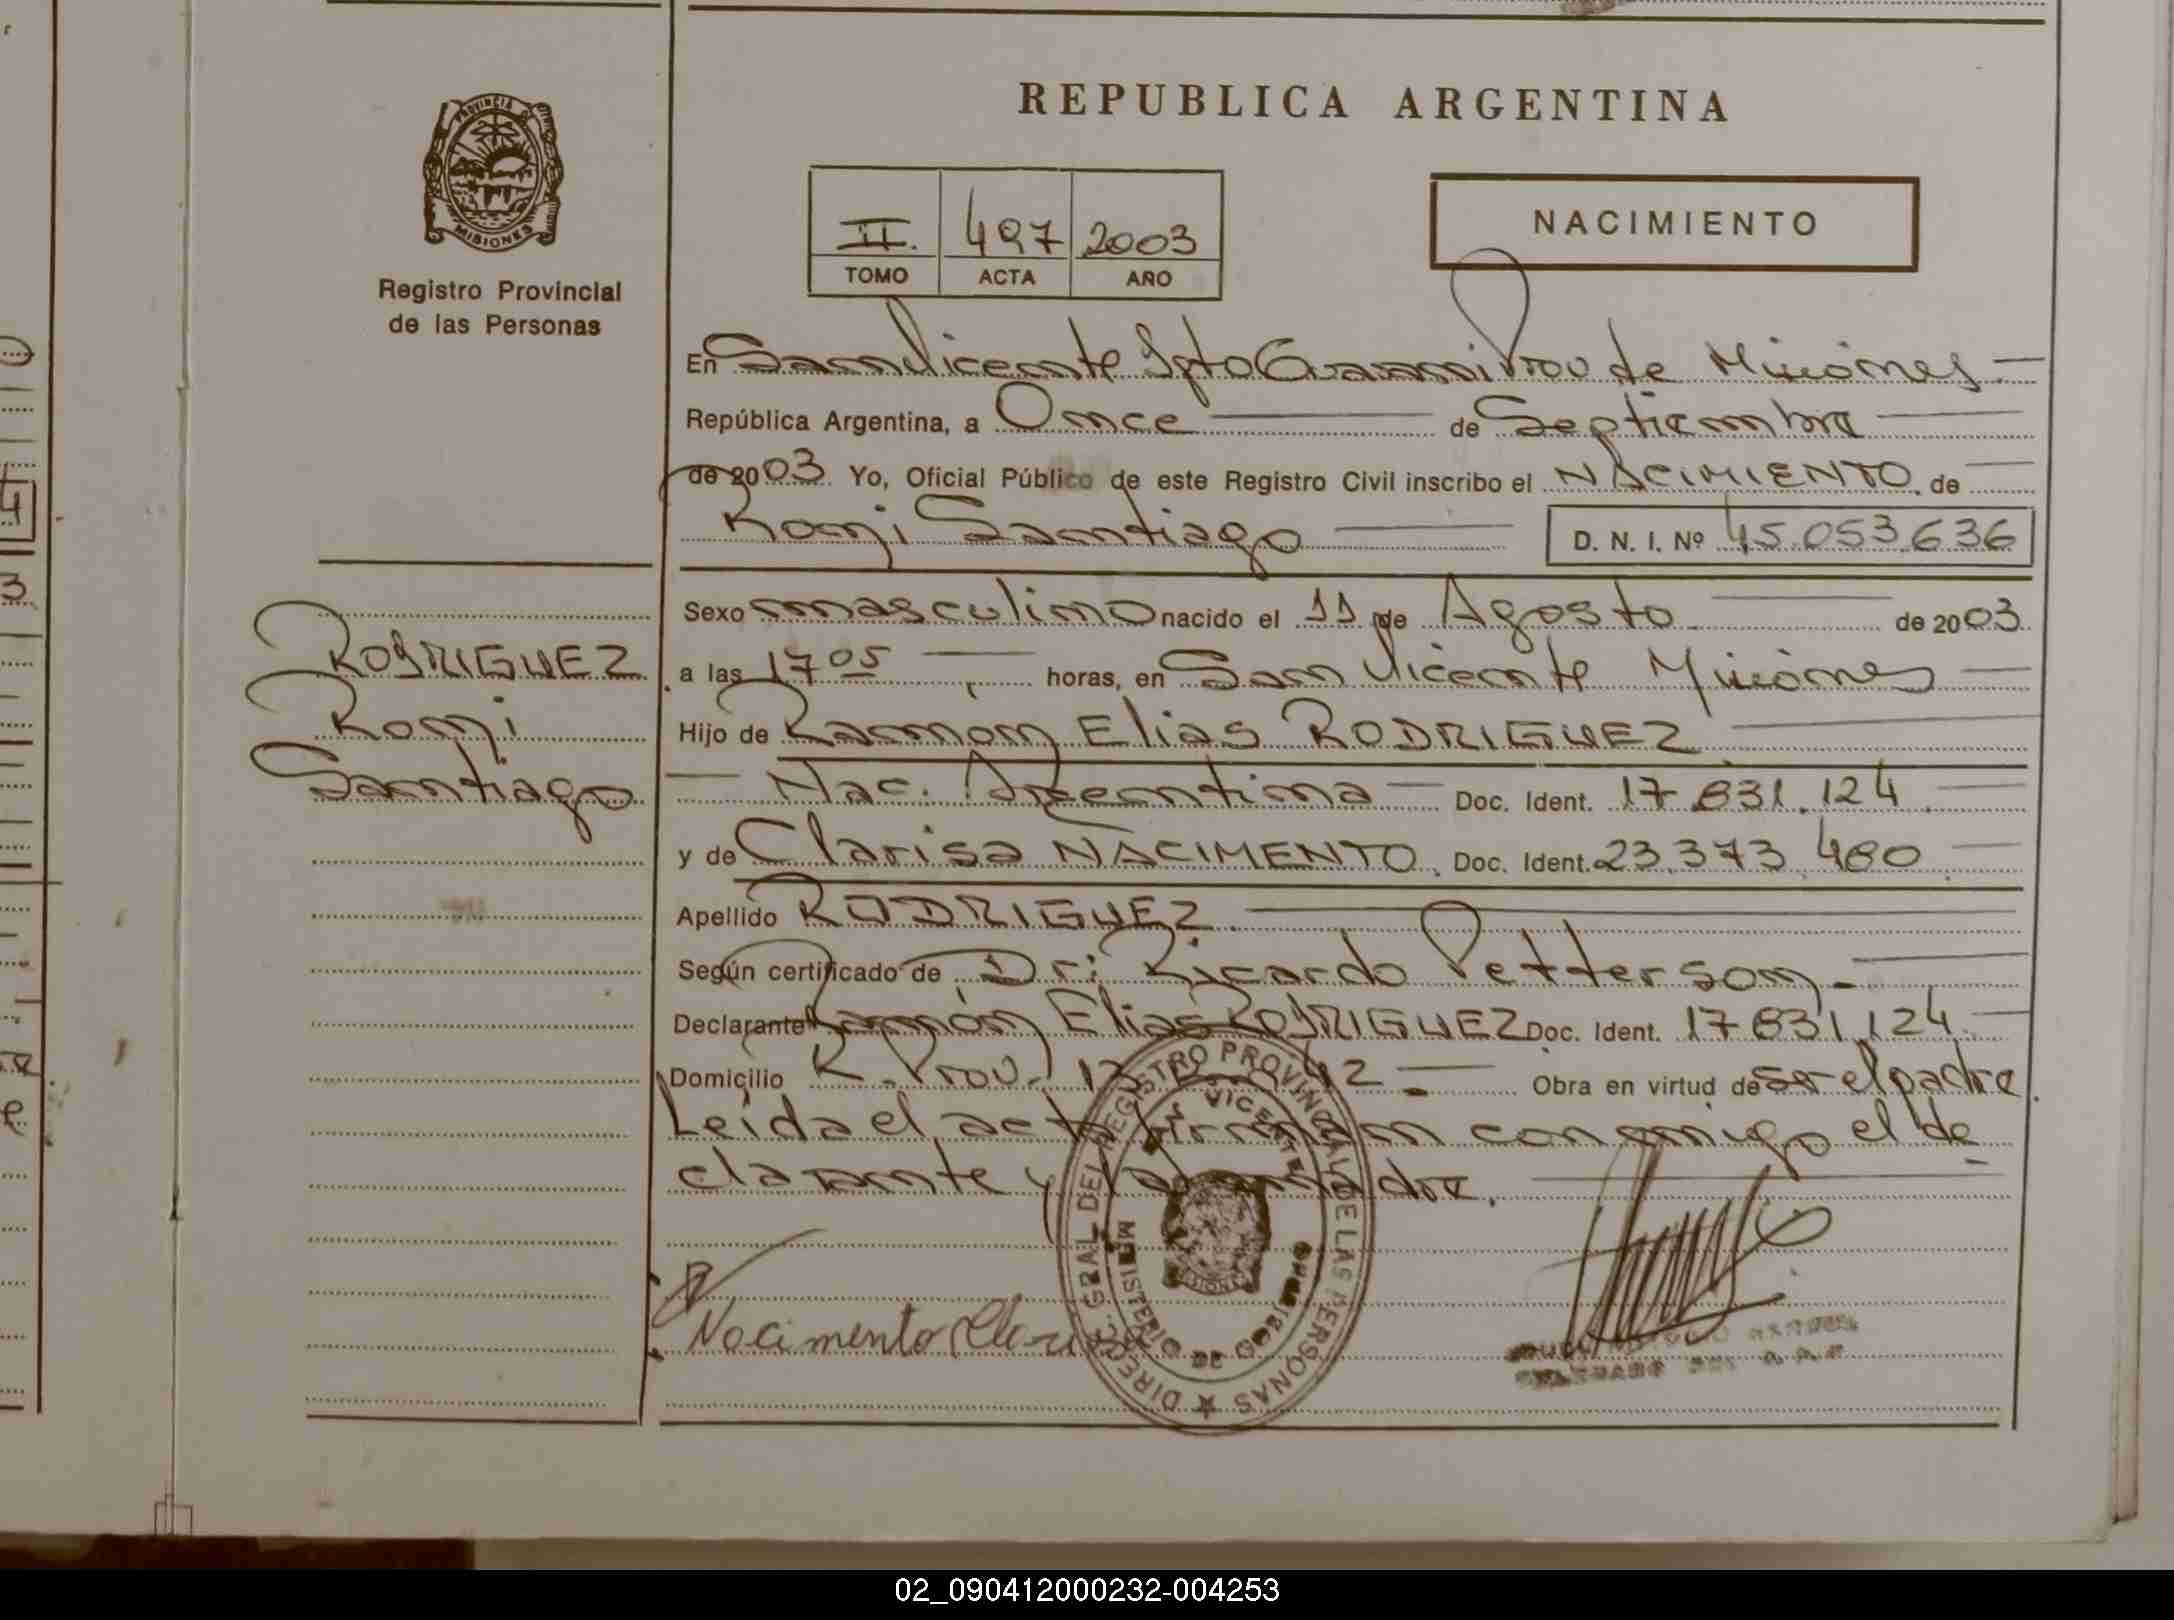 REPUBLICA ARGENTINA
PROVINCIA
MISIONES
Registro Provincial
de las Personas
II. 497 2003
TOMO ACTA AÑO
NACIMIENTO
En San Vicente Dpto Guarani Prov de Misiones
República Argentina, a Once de Septiembre
de 2003 Yo, Oficial Público de este Registro Civil inscribo el NACIMIENTO de
Romi Santiago D. N. I. Nº 45.053.636
Sexo masculino nacido el 11 de Agosto de 2003
a las 17 05 horas, en San Vicente Misiones
Hijo de Ramón Elias RODRIGUEZ
Nac. Argentina Doc. Ident. 17.831.124
y de Clarisa NACIMENTO. Doc. Ident. 23.373.480
Apellido RODRIGUEZ
Según certificado de Dr: Ricardo Petterson
Declarante Ramón Elias RODRIGUEZ Doc. Ident. 17.831.124
Domicilio R. Prov. 42 Obra en virtud de ser el padre
Leida el acta firman conmigo el de
clarante y la madre.
RODRIGUEZ
Romi
Santiago
Nacimento Clarisa
DIREC. GRAL DEL REGISTRO PROVINCIAL DE LAS PERSONAS
VICENTE
MINISTERIO DE GOBIERNO
02_090412000232-004253